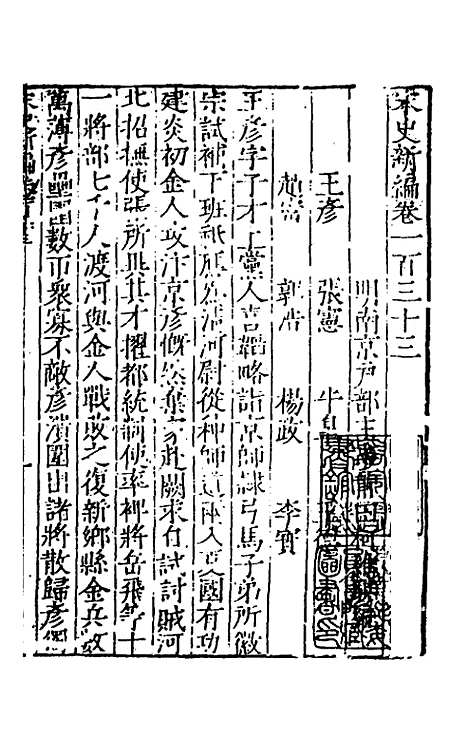 宋史新編卷一百三十三
明南京戶部主
王彥 張憲 牛皐
趙密 郭浩 楊政 李寶
王彥字子才上黨人喜韜略詣京師隷弓馬子弟所徽
宗試補下班祗應爲清河尉從种師道兩入夏國有功
建炎初金人攻汴京彥慨然棄家赴闕求自試討賊河
北招撫使張所異其才擢都統制使率裨將岳飛等十
一將部七千人渡河與金人戰敗之復新鄉縣金兵數
萬薄彥壘圍數帀衆寡不敵彥潰圍出諸將散歸彥獨